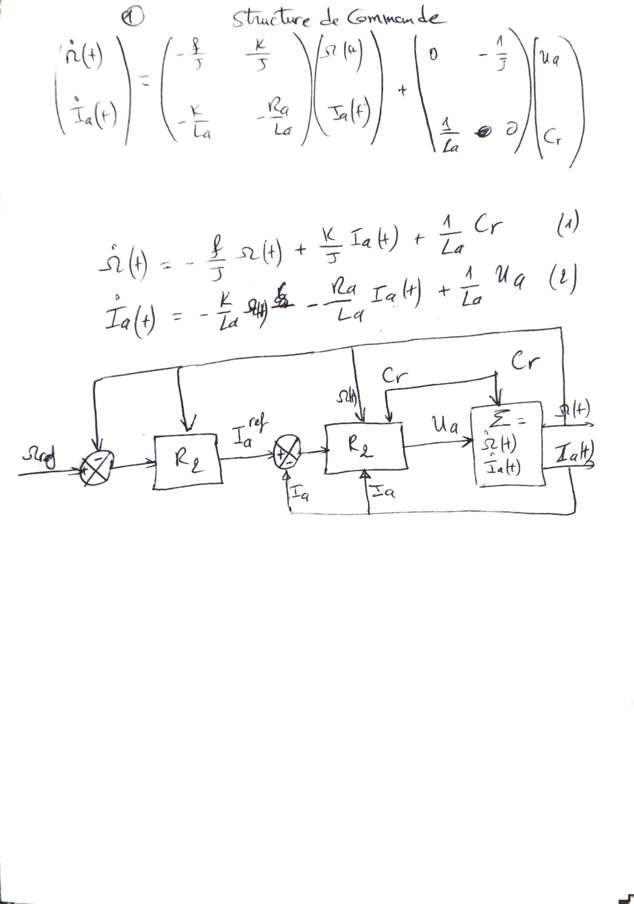 ① Structure de Commande
(Ω̇(t) ; İa(t)) = (-f/J  K/J ; -K/La  -Ra/La) (Ω(t) ; Ia(t)) + (0  -1/J ; 1/La  0) (Ua ; Cr)
Ω̇(t) = - f/J Ω(t) + K/J Ia(t) + 1/La Cr (1)
İa(t) = - K/La Ω(t) - Ra/La Ia(t) + 1/La Ua (2)
Cr
Cr
Ωref
R2
Ia^ref
Ω(t)
R2
Ua
Σ =
Ω̇(t)
İa(t)
Ω(t)
Ia(t)
Ia
Ia